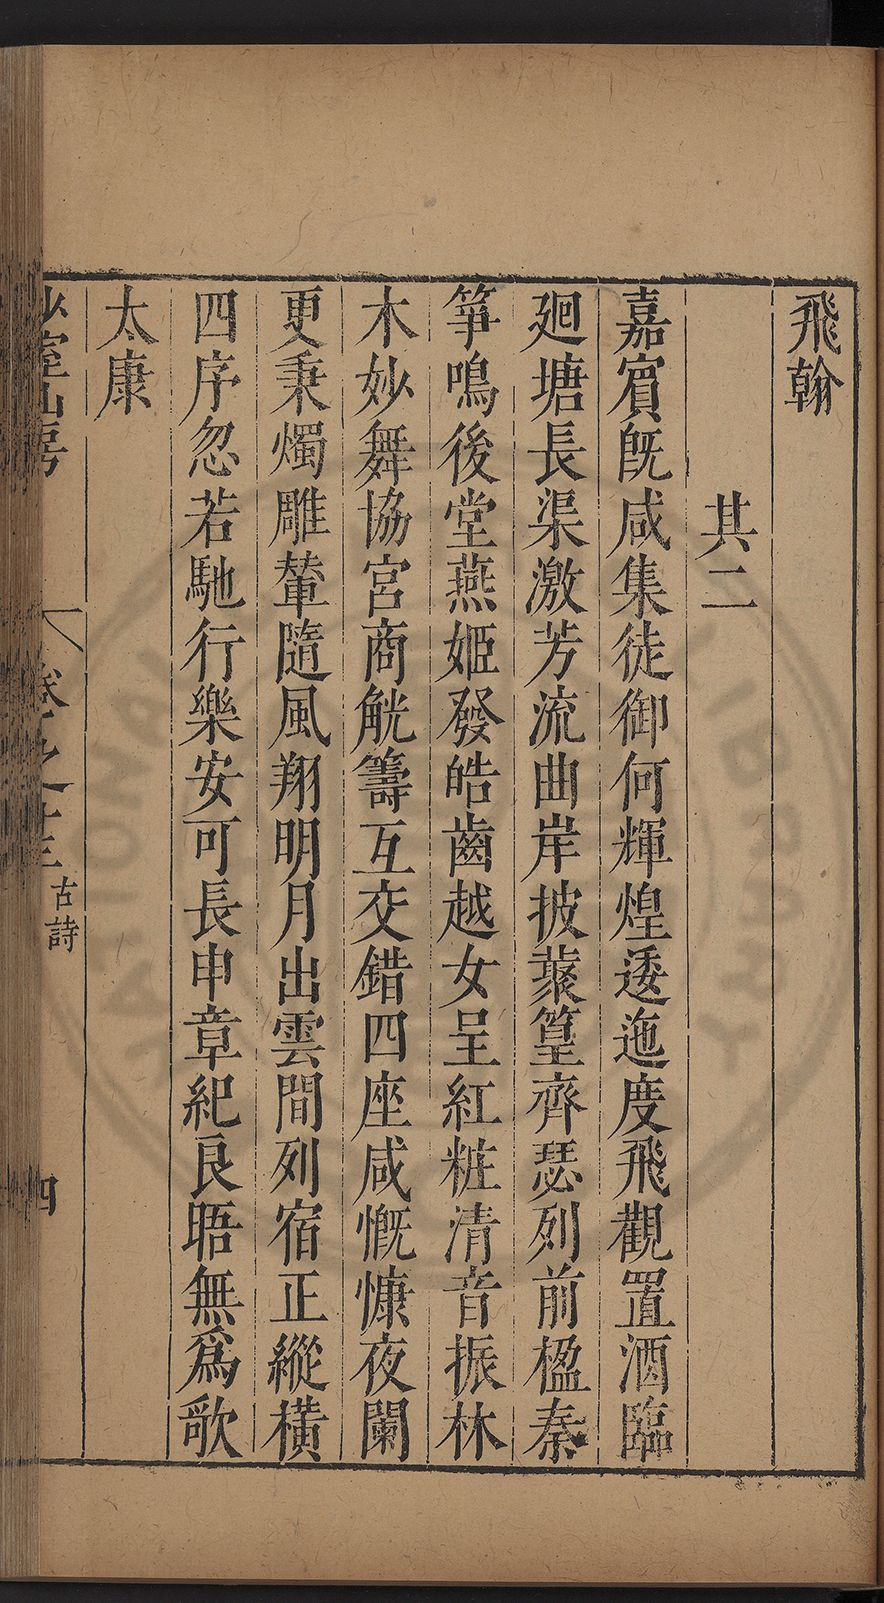 飛翰
其二
嘉賓旣咸集徒御何輝煌逶迤度飛觀置酒臨
廻塘長渠激芳流曲岸披叢篁齊瑟列前楹秦
箏鳴後堂燕姬發皓齒越女呈紅粧清音振林
木妙舞協宮商觥籌互交錯四座咸慨慷夜闌
更秉燭雕輦隨風翔明月出雲間列宿正縱橫
四序忽若馳行樂安可長申章紀良晤無爲歌
太康
少室山房
卷之十三
古詩
四